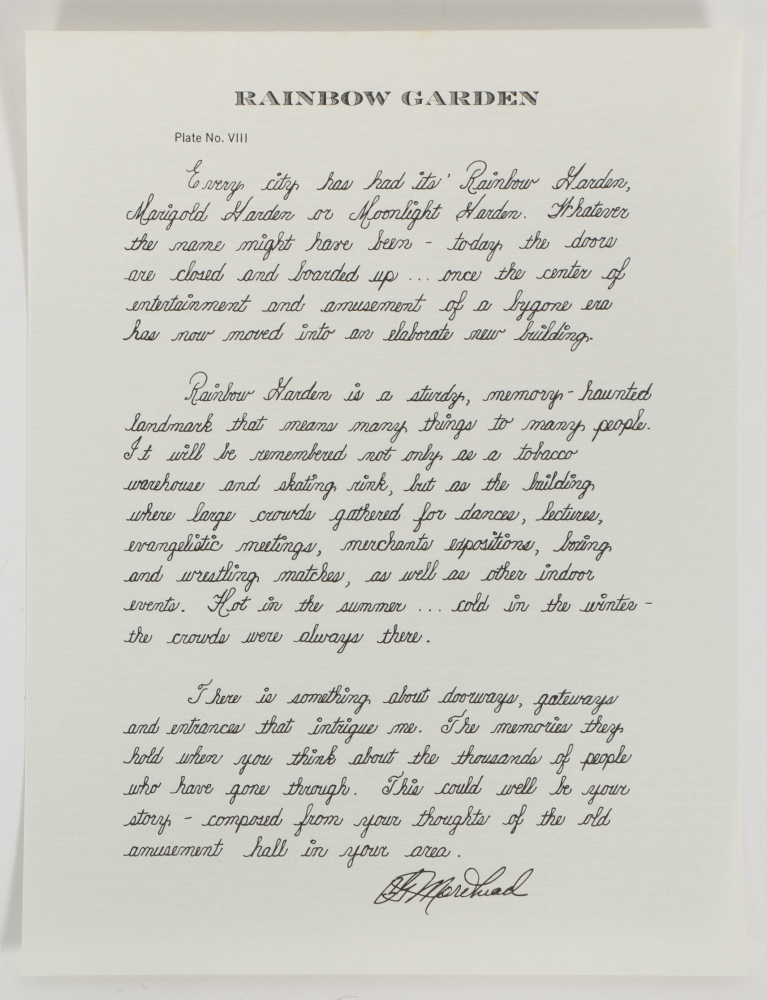 RAINBOW GARDEN
Plate No. VIII
Every city has had its' Rainbow Garden,
Marigold Garden or Moonlight Garden. Whatever
the name might have been - today the doors
are closed and boarded up ... once the center of
entertainment and amusement of a bygone era
has now moved into an elaborate new building.
Rainbow Garden is a sturdy, memory-haunted
landmark that means many things to many people.
It will be remembered not only as a tobacco
warehouse and skating rink, but as the building
where large crowds gathered for dances, lectures,
evangelistic meetings, merchants expositions, boxing
and wrestling matches, as well as other indoor
events. Hot in the summer ... cold in the winter -
the crowds were always there.
There is something about doorways, gateways
and entrances that intrigue me. The memories they
hold when you think about the thousands of people
who have gone through. This could well be your
story - composed from your thoughts of the old
amusement hall in your area.
Morehead